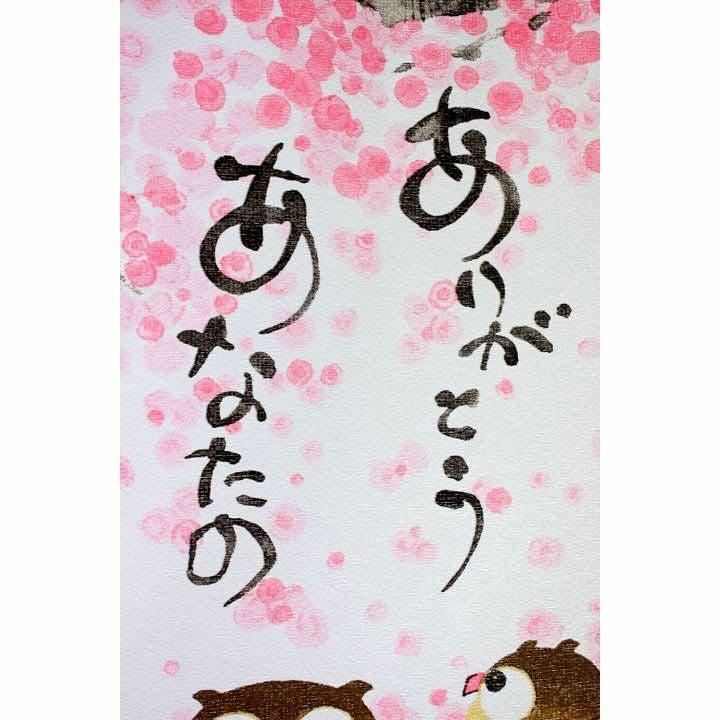 ありがとう
あなたの